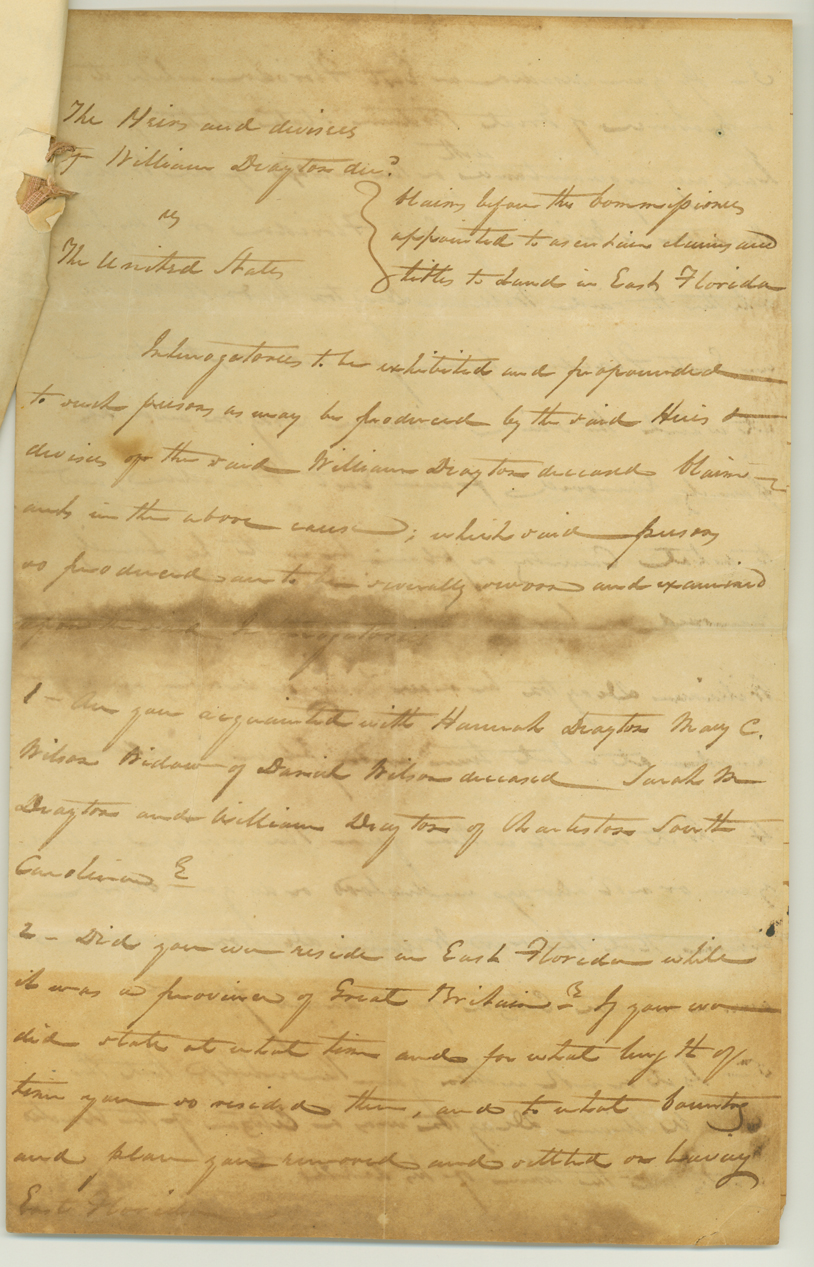 The Heirs and devisees
of William Drayton decd
vs
The United States
Claims before the Commissioners
appointed to ascertain claims and
titles to Land in East Florida
Interrogatories to be exhibited and propounded
to such persons as may be produced by the said Heirs &
devisees of the said William Drayton deceased Claim-
ants in the above cause; which said persons
so produced are to be severally sworn and examined
upon the said Interrogatories
1 - Are you acquainted with Hannah Drayton Mary C.
Wilson Widow of Daniel Wilson deceased Sarah M
Drayton and William Drayton of Charleston South
Carolina?
2 - Did you ever reside in East Florida while
it was a province of Great Britain? If you ever
did state at what time and for what length of
time you so resided there, and to what Country
and place you removed and settled on leaving
East Florida